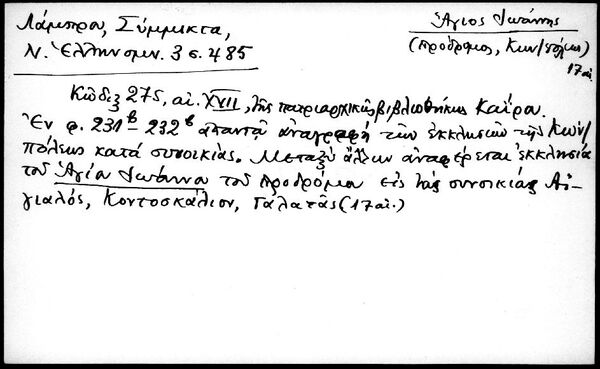 Λάμπρου, Σύμμικτα,
Ν. Ἑλληνομν. 3 σ. 485
Ἅγιος Ἰωάννης
(Πρόδρομος, Κων/πόλεως)
17 αἰ.
Κῶδιξ 275, αἰ. XVII, τῆς πατριαρχικῆς βιβλιοθήκης Καΐρου.
Ἐν φ. 231β - 232β ἀπαντᾷ ἀναγραφὴ τῶν ἐκκλησιῶν τῆς Κων/
πόλεως κατὰ συνοικίας. Μεταξὺ ἄλλων ἀναφέρεται ἐκκλησία
τοῦ Ἁγίου Ἰωάννου τοῦ Προδρόμου εἰς τὰς συνοικίας Αἰ-
γιαλός, Κοντοσκάλιον, Γαλατᾶς (17 αἰ.)